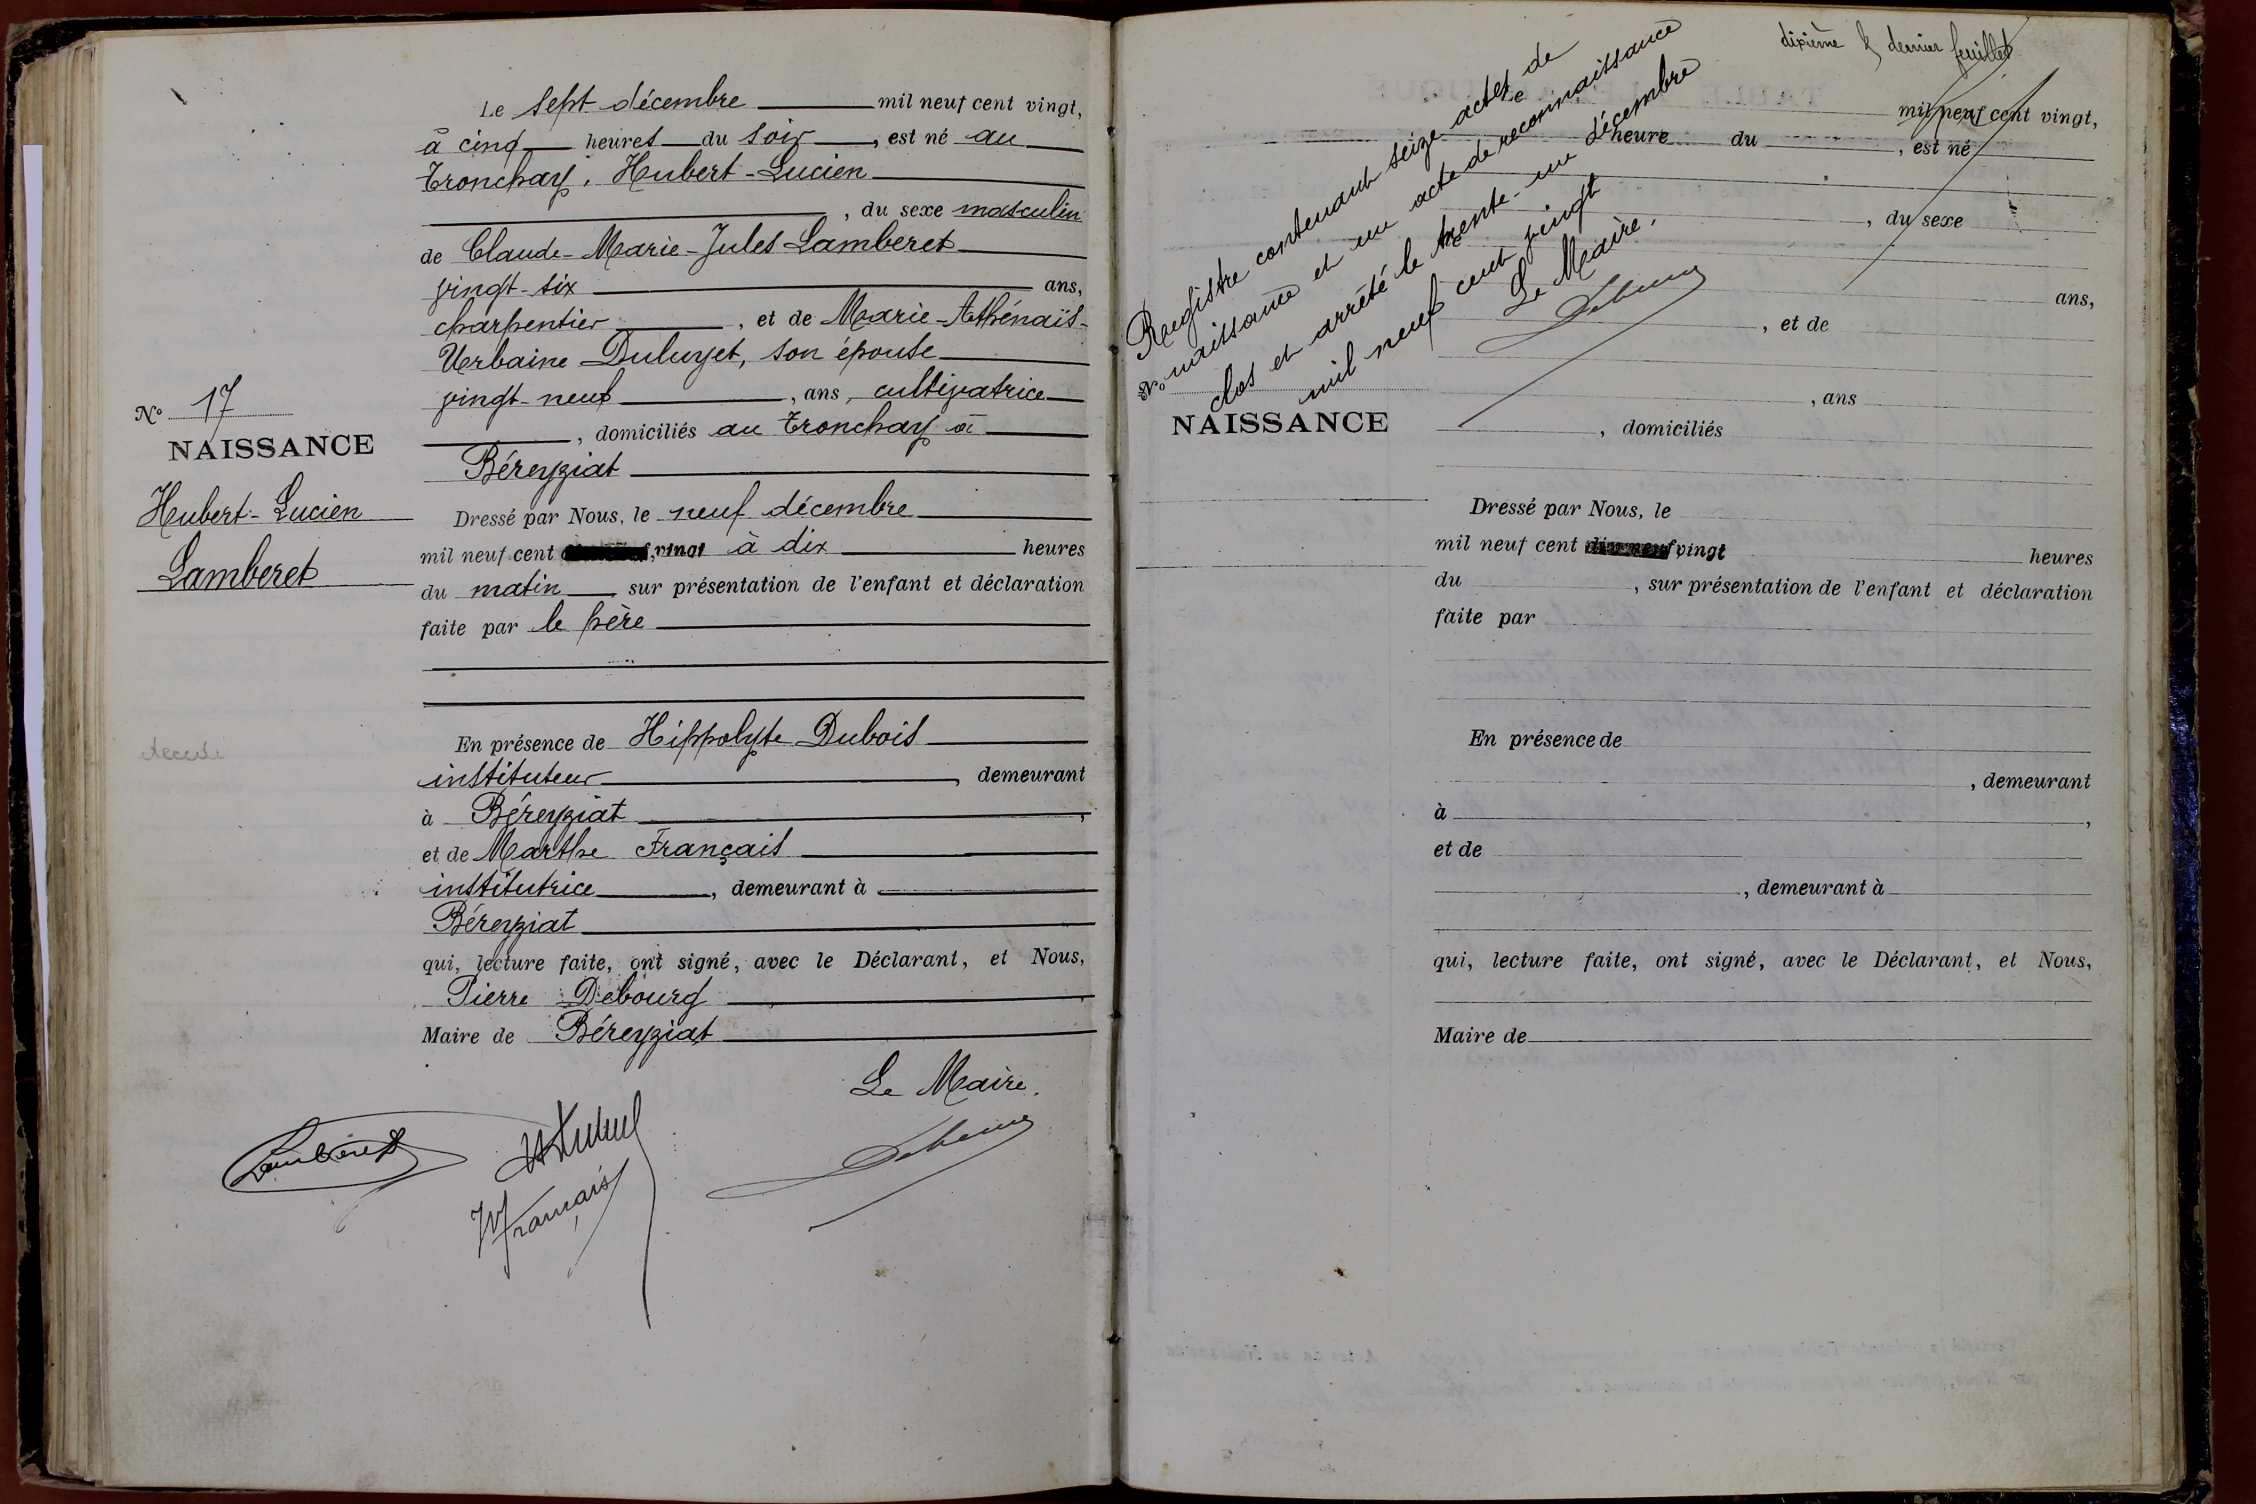 Le sept décembre mil neuf cent vingt,
à cinq heures du soir, est né au
Tronchay, Hubert-Lucien
, du sexe masculin
de Claude-Marie-Jules Lamberet
vingt-six ans,
charpentier, et de Marie-Athénaïs-
Urbaine Duluyet, son épouse
vingt-neuf, ans, cultivatrice
, domiciliés au Tronchay à
Béreyziat
Nº 17
NAISSANCE
Hubert-Lucien
Lamberet
Dressé par Nous, le neuf décembre
mil neuf cent vingt à dix heures
du matin sur présentation de l'enfant et déclaration
faite par le père
En présence de Hippolyte Dubois
instituteur, demeurant
à Béreyziat,
et de Marthe Français
institutrice, demeurant à
Béreyziat
qui, lecture faite, ont signé, avec le Déclarant, et Nous,
Pierre Debourg
Maire de Béreyziat
Le Maire.
Lamberet
MFrançais
dixième & dernier feuillet
Registre contenant seize actes de
naissance et un acte de reconnaissance
clos et arrêté le trente-un décembre
mil neuf cent vingt
Le Maire.
Le
mil neuf cent vingt,
heure du, est né
, du sexe
ans,
, et de
, ans
, domiciliés
Nº
NAISSANCE
Dressé par Nous, le
mil neuf cent vingt heures
du, sur présentation de l'enfant et déclaration
faite par
En présence de
, demeurant
à,
et de
, demeurant à
qui, lecture faite, ont signé, avec le Déclarant, et Nous,
Maire de